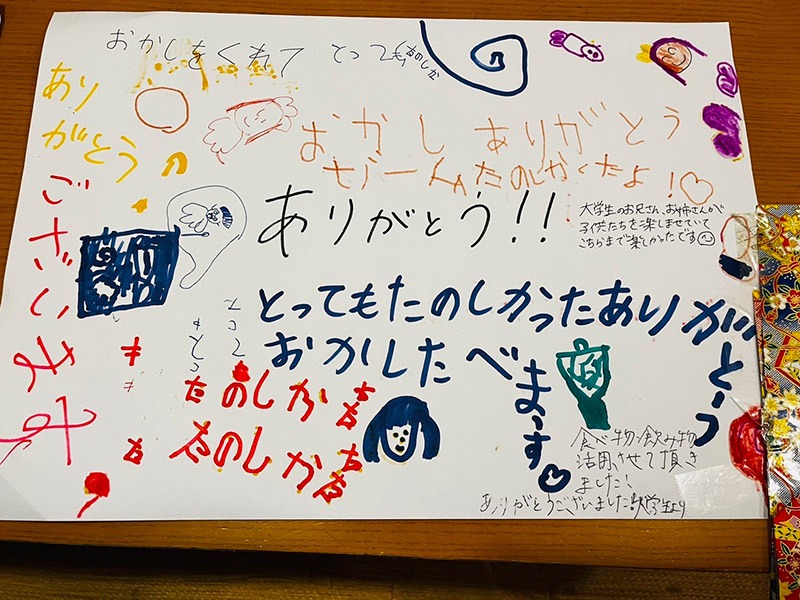 おかしをくれて とってもたのしか
あり
がとう
ございます
おかし ありがとう
ぜーんぶたのしかったよ!♡
ありがとう!!
大学生のお兄さん、お姉さんが
子供たちを楽しませていて
こちらまで楽しかったです
とってもたのしかったありがとう
おかしたべます♡
とっても
たのしかた
たのしかた
食べ物・飲み物
活用させて頂き
ました!
ありがとうございました!大学生より